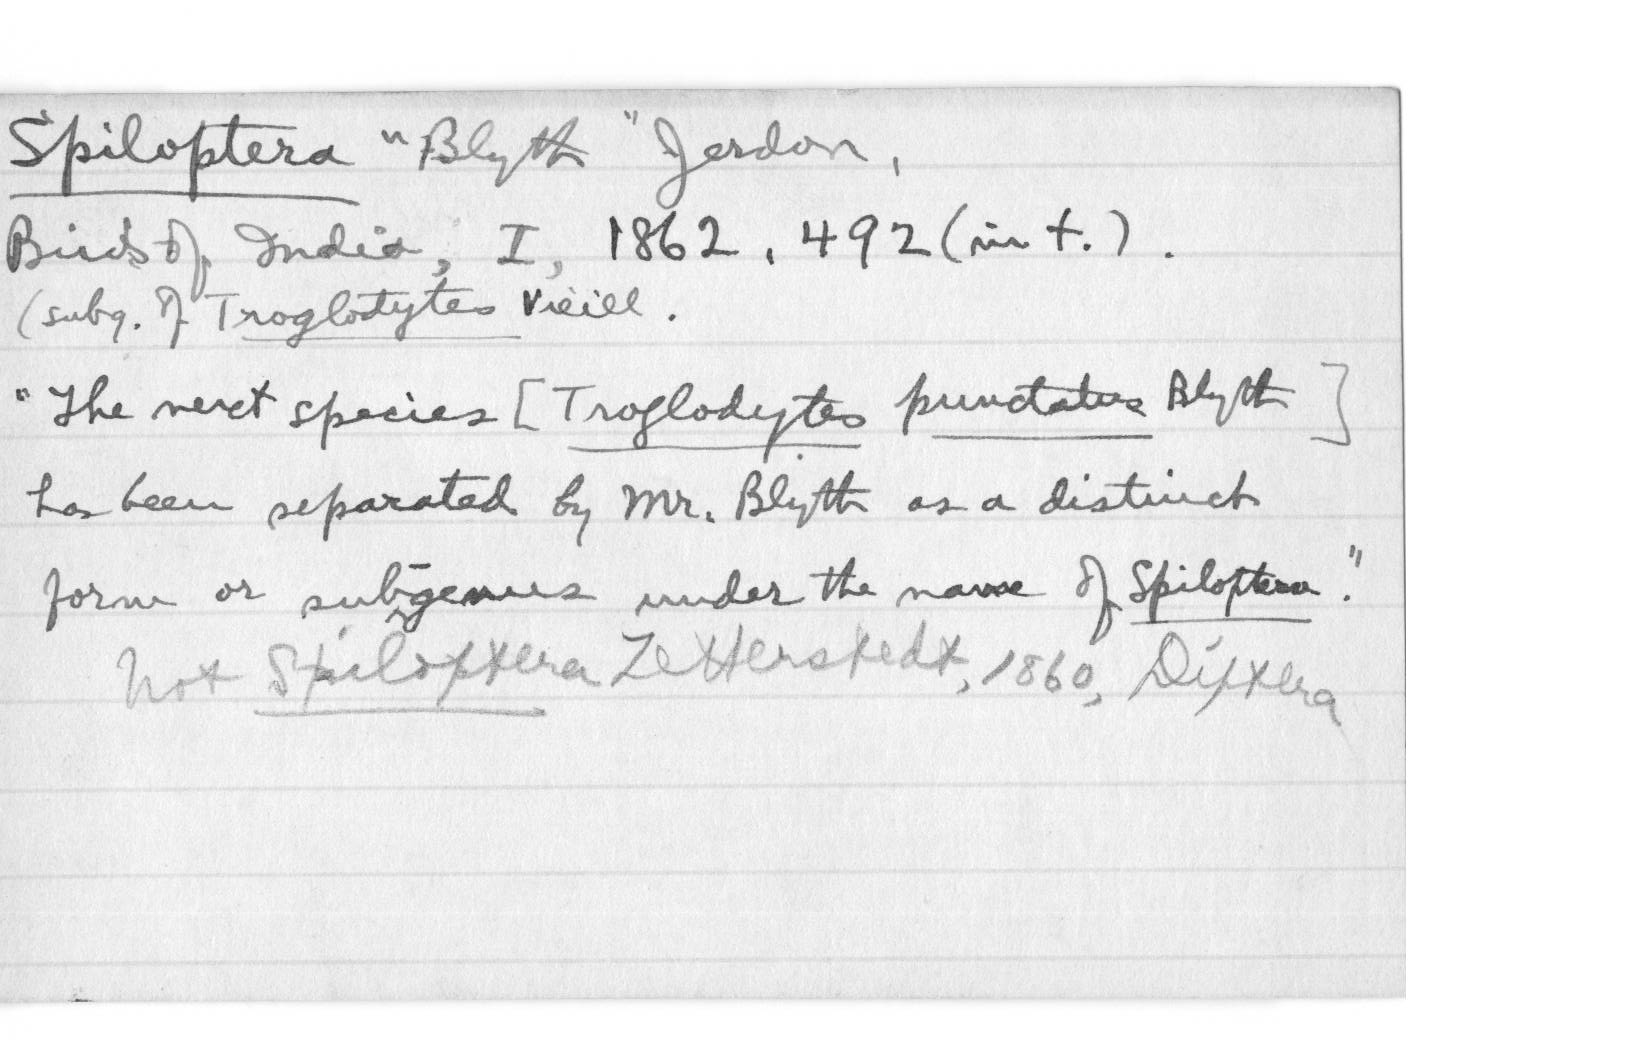 Spiloptera "Blyth" Jerdon,
Birds of India, I, 1862, 492 (in t.).
(subg. of Troglodytes Vieill.
"The next species [Troglodytes punctatus Blyth]
has been separated by Mr. Blyth as a distinct
form or subgenus under the name of Spiloptera."
Not Spiloptera Zetterstedt, 1860, Diptera